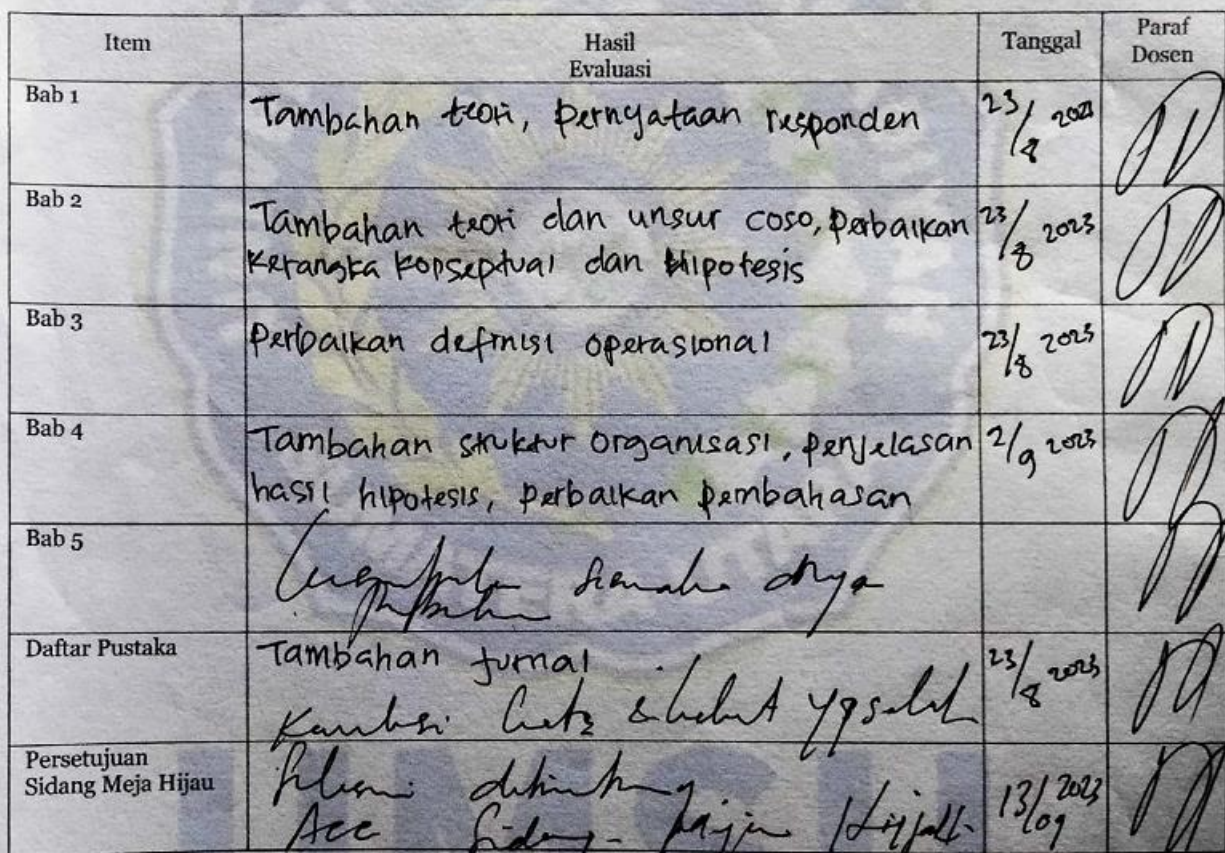 Item Hasil Evaluasi Tanggal Paraf Dosen
Bab 1 Tambahan teori, pernyataan responden 23/8 2023
Bab 2 Tambahan teori dan unsur coso, perbaikan 23/8 2023
kerangka konseptual dan Hipotesis
Bab 3 perbaikan definisi operasional 23/8 2023
Bab 4 Tambahan struktur organisasi, penjelasan 2/9 2023
hasil hipotesis, perbaikan pembahasan
Bab 5
Daftar Pustaka Tambahan jurnal 23/8 2023
Persetujuan
Sidang Meja Hijau 13/09 2023
Acc Sidang Meja Hijau